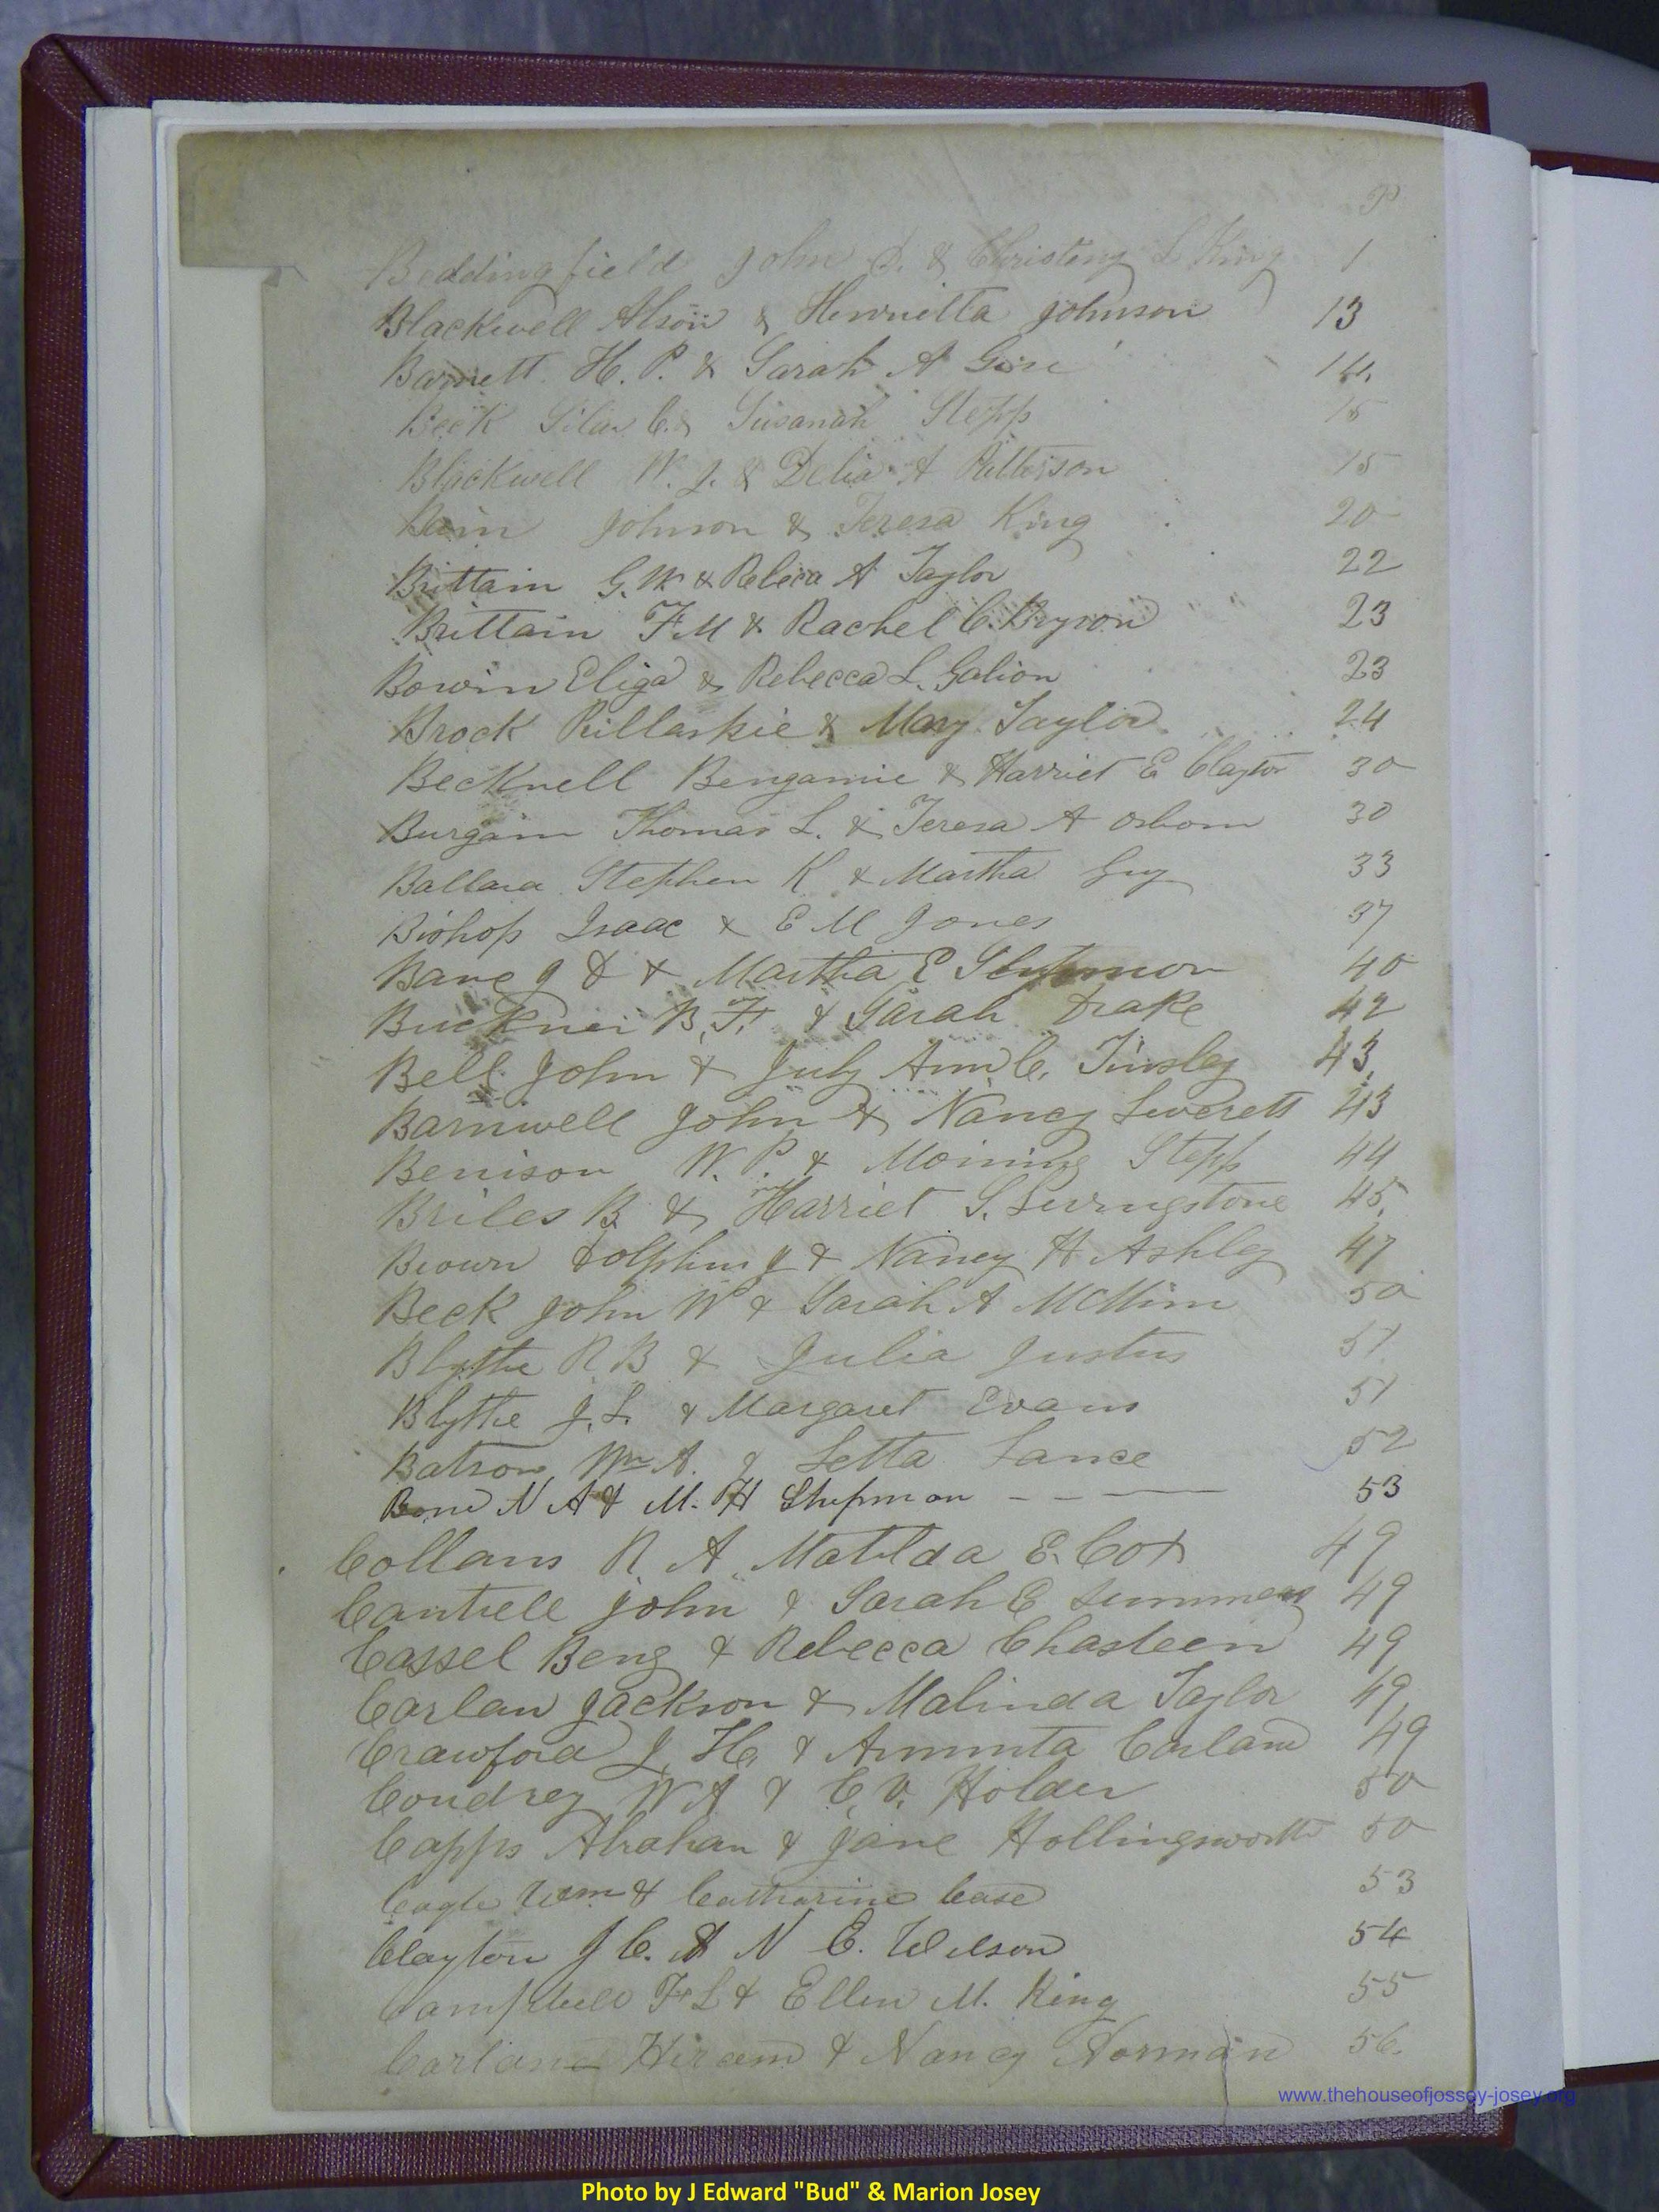 P
Beddingfield John D. & Christeny L King 1
Blackwell Alson & Henrietta Johnson 13
Barnett H. P. & Sarah A 14
Beck Silas C. & Susanah Stepp 15
Blackwell W. J. & Delia A Patterson 15
Bain Johnson & Teresa King 20
Brittain G. W & Rebeca A Taylor 22
Brittain F M & Rachel C. Bryson 23
Bowin Eliga & Rebecca L. Galion 23
Brock & Mary Taylor 24
Becknell Bengamie & Harriet E Clayton 30
Burgain Thomas L. & Teresa A Osborn 30
Ballard Stephen K & Martha Guy 33
Bishop Isaac & E M Jones 37
Bane J D & Martha E 40
Buckner B. F. & Sarah Drake 42
Bell John & July Ann C. Tinsley 43
Barnwell John & Nancy Leverett 43
Benison W. P. & Morning Stepp 44
Briles B. & Harriet S. Livingstone 45
Brown Dolphin J & Nancy H Ashley 47
Beck John W & Sarah A McMinn 50
Blythe R B & Julia Justus 51
Blythe J. L. & Margaret Evans 51
Batson Wm A. & Letta Lance 52
Bone N A & M. H Shipman - - — 53
Collans R. A. Matilda E. Cox 49
Cantrell John & Sarah E Summey 49
Cassel Benj & Rebecca Chasteen 49
Carlan Jackson & Malinda Taylor 49
Crawford J. H. & Arminta Carland 49
Coudrey W A & C. V. Holder 50
Capps Abraham & Jane Hollingsworth 50
Cagle Wm & Catharine Case 53
Clayton J C. & N E. Wilson 54
Campbell F L & Ellen M. King 55
Carland Hiram & Nancy Norman 56
www.thehouseofjossey-josey.org
Photo by J Edward "Bud" & Marion Josey